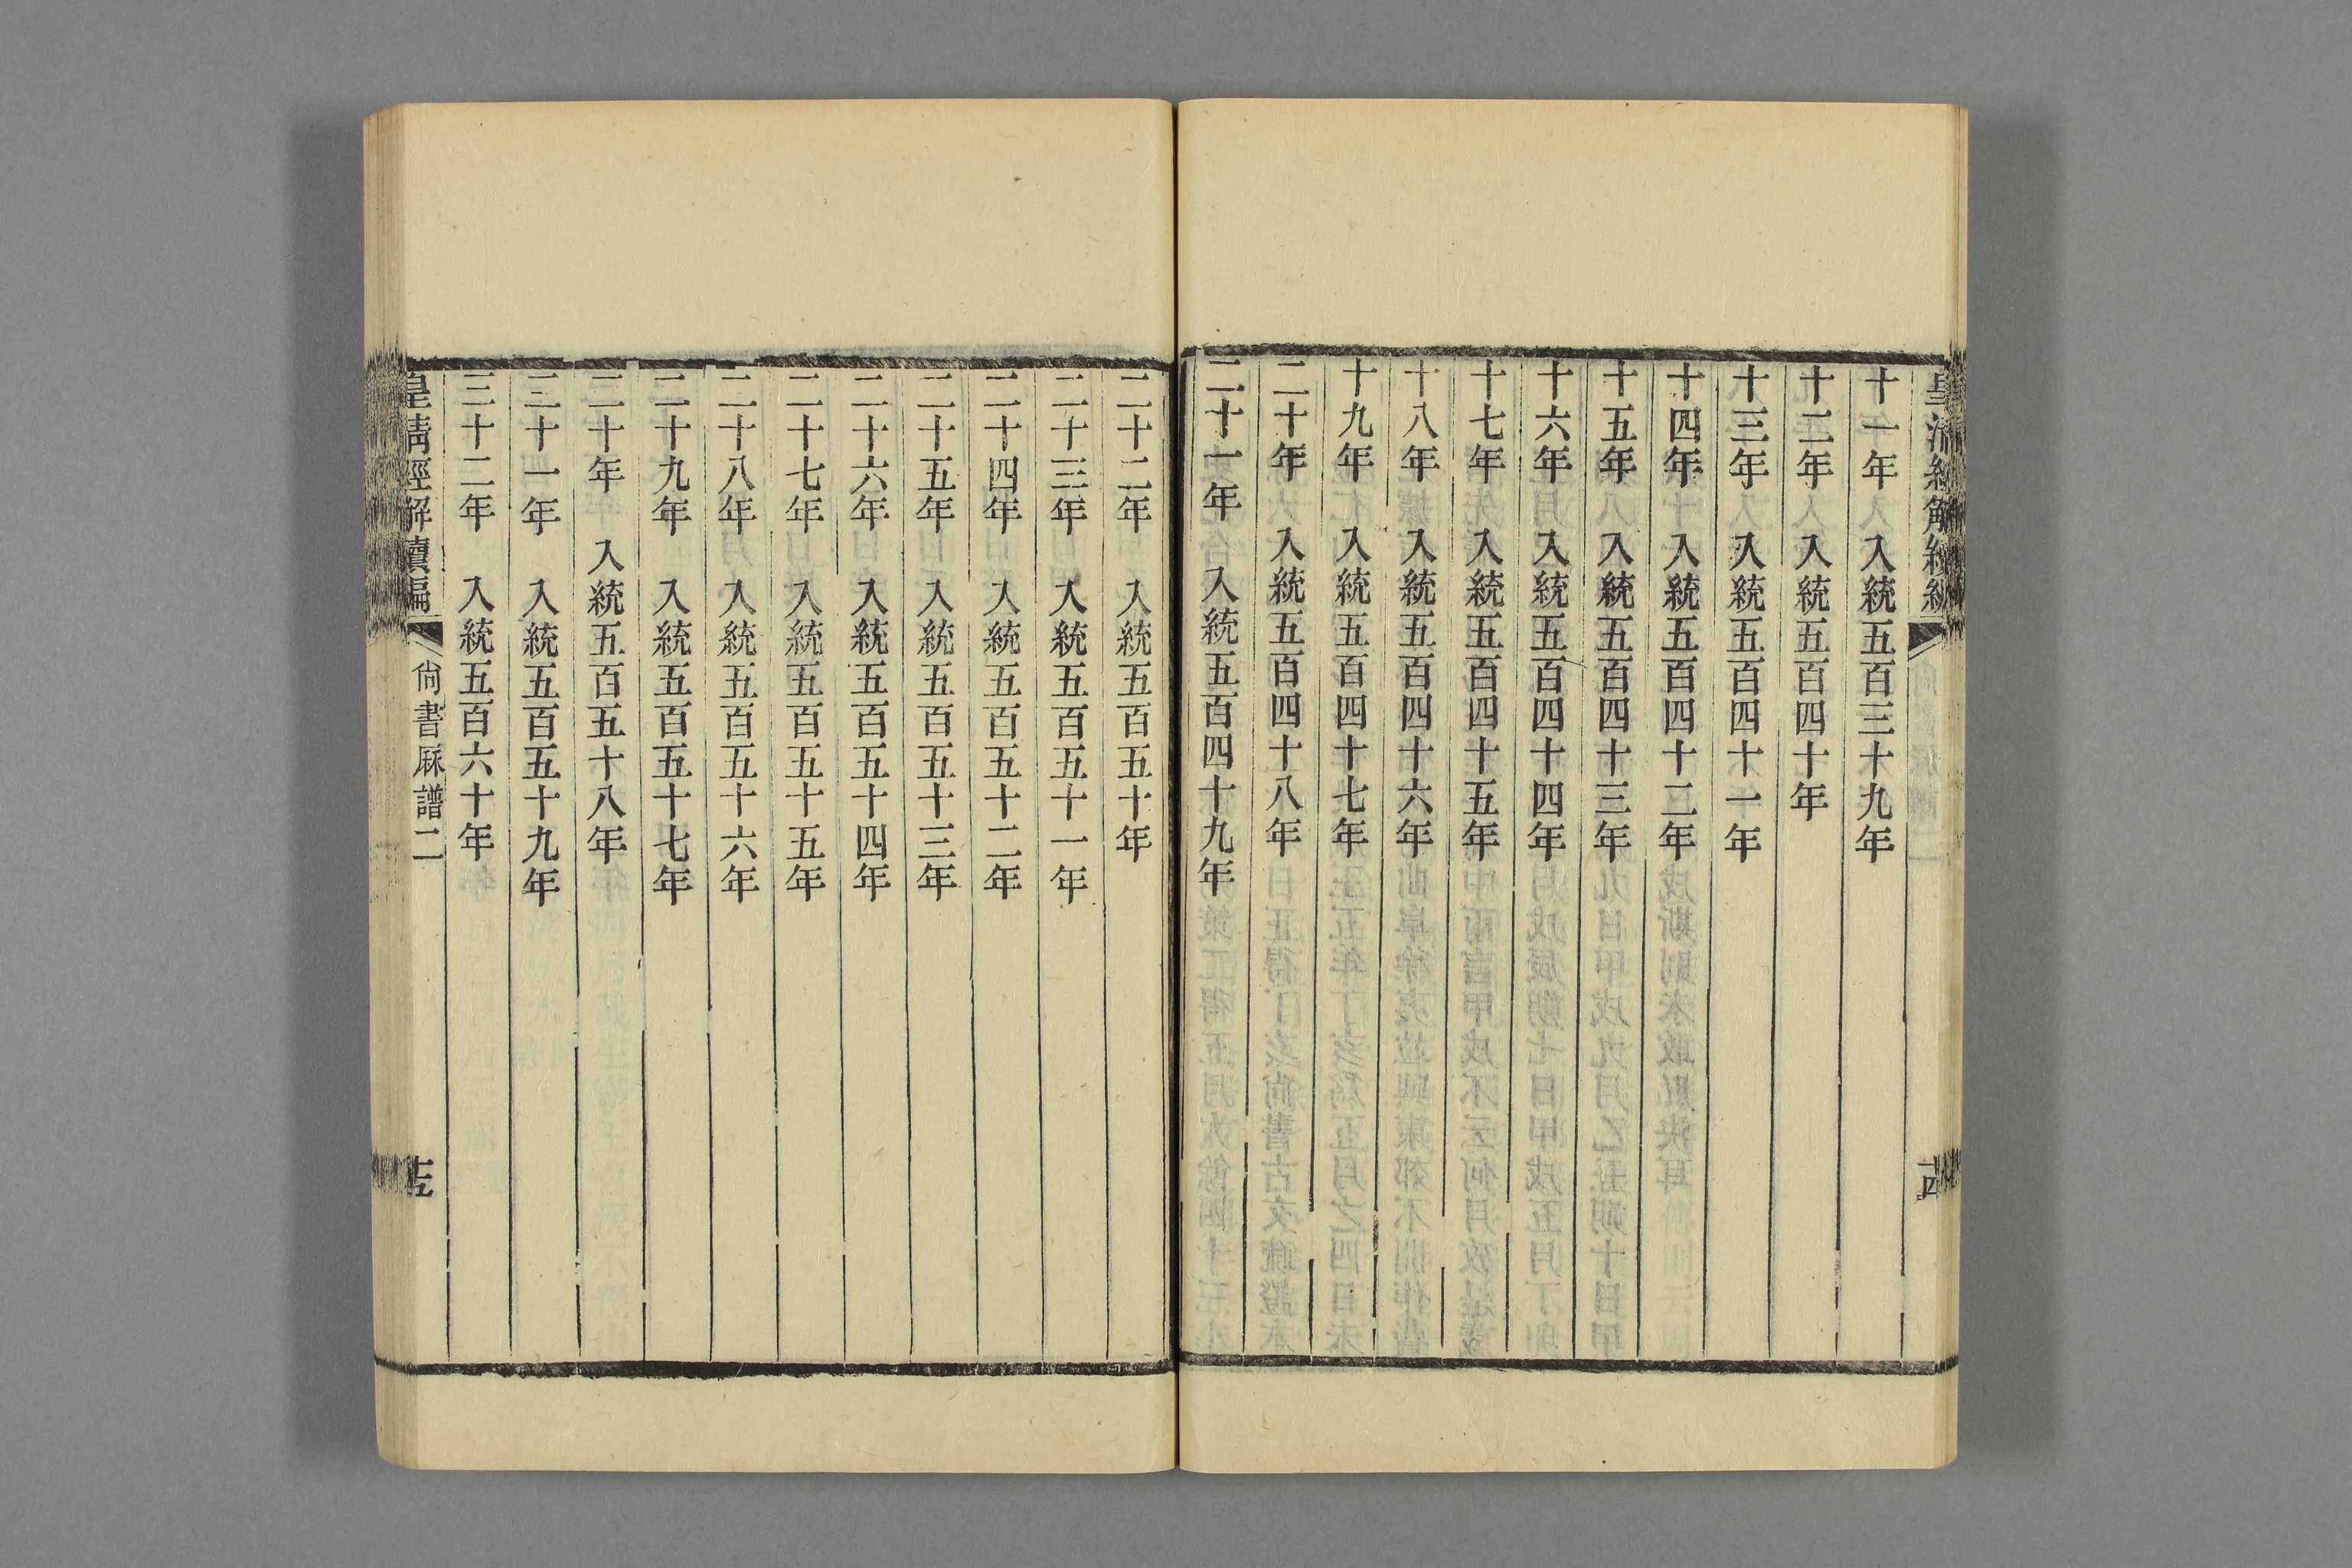 十一年　入統五百三十九年
十二年　入統五百四十年
十三年　入統五百四十一年
十四年　入統五百四十二年
十五年　入統五百四十三年
十六年　入統五百四十四年
十七年　入統五百四十五年
十八年　入統五百四十六年
十九年　入統五百四十七年
二十年　入統五百四十八年
二十一年　入統五百四十九年
二十二年　入統五百五十年
二十三年　入統五百五十一年
二十四年　入統五百五十二年
二十五年　入統五百五十三年
二十六年　入統五百五十四年
二十七年　入統五百五十五年
二十八年　入統五百五十六年
二十九年　入統五百五十七年
三十年　入統五百五十八年
三十一年　入統五百五十九年
三十二年　入統五百六十年
皇清經解續編　尙書厤譜二